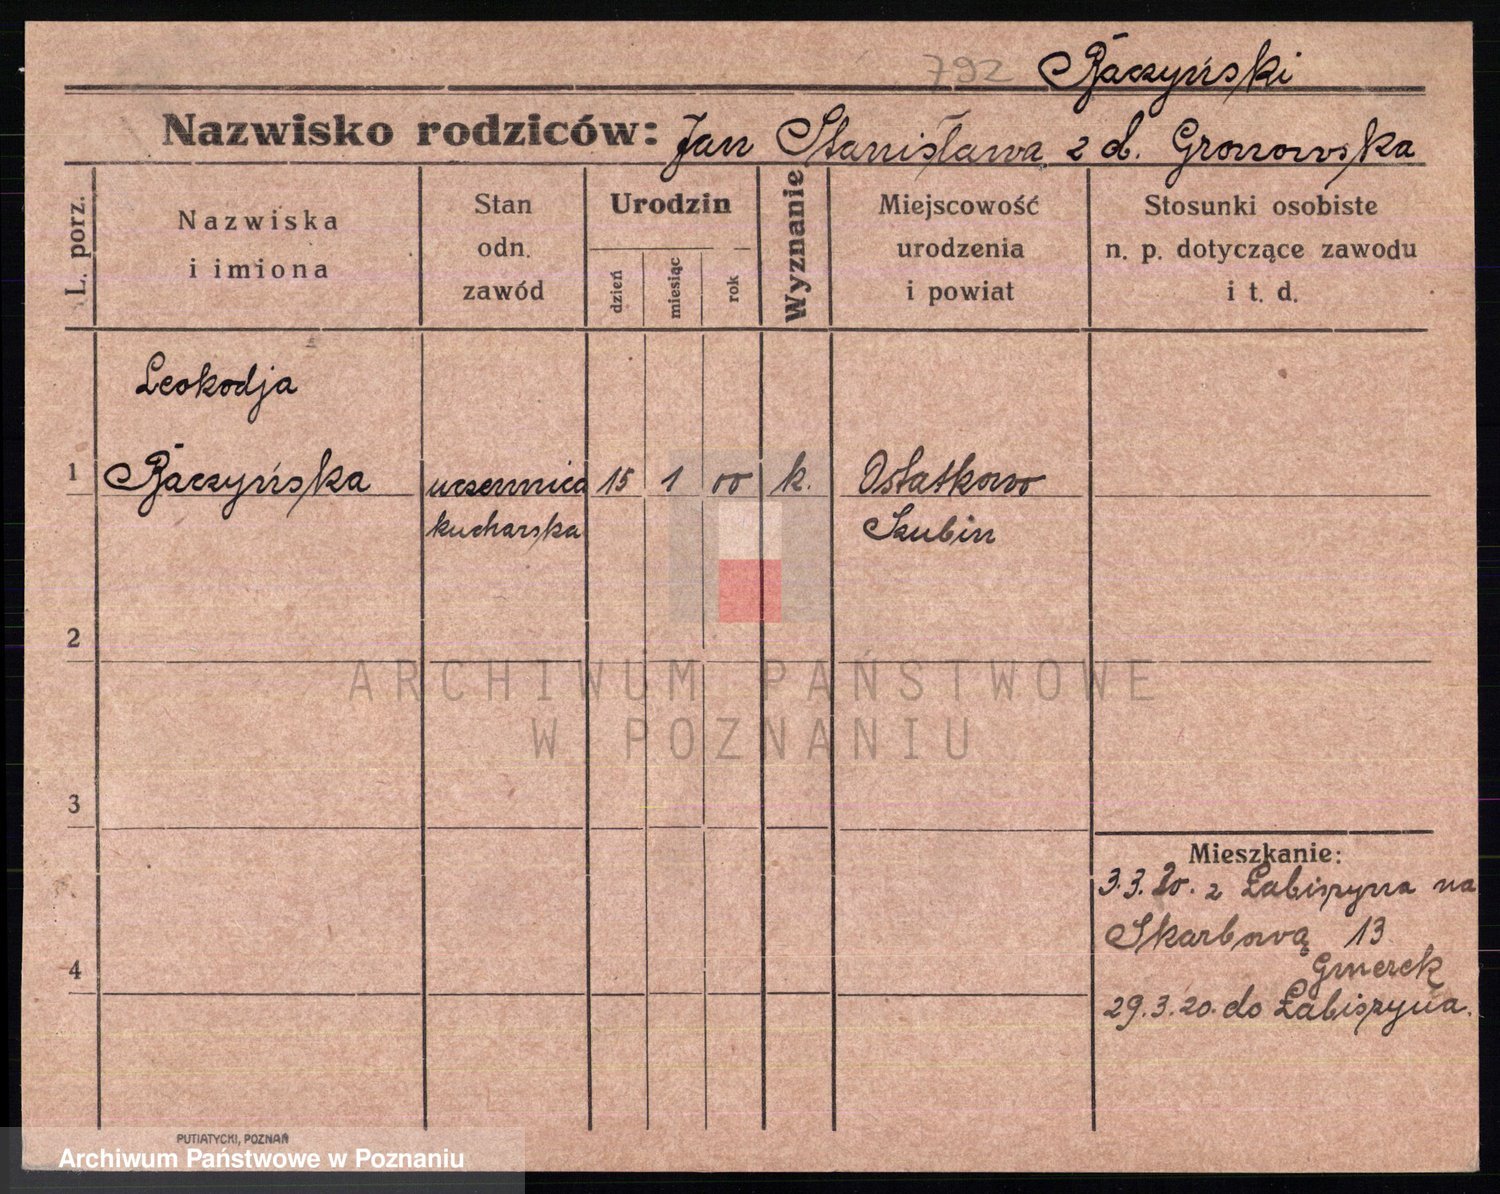 792 Raczyński
Nazwisko rodziców: Jan Stanisława z d. Gronowska
L. porz.
Nazwiska
i imiona
Stan
odn.
zawód
Urodzin
dzień
miesiąc
rok
Wyznanie
Miejscowość
urodzenia
i powiat
Stosunki osobiste
n. p. dotyczące zawodu
i t. d.
Leokodja
1 Raczyńska uczennica 15 1 00 k. Ostatkowo
kucharska Szubin
2
ARCHIWUM PAŃSTWOWE
W POZNANIU
3
Mieszkanie:
3.3.20. z Łabiszyna na
Skarbową 13
Gmerek
4
29.3.20. do Łabiszyna.
PUTIATYCKI, POZNAŃ
Archiwum Państwowe w Poznaniu